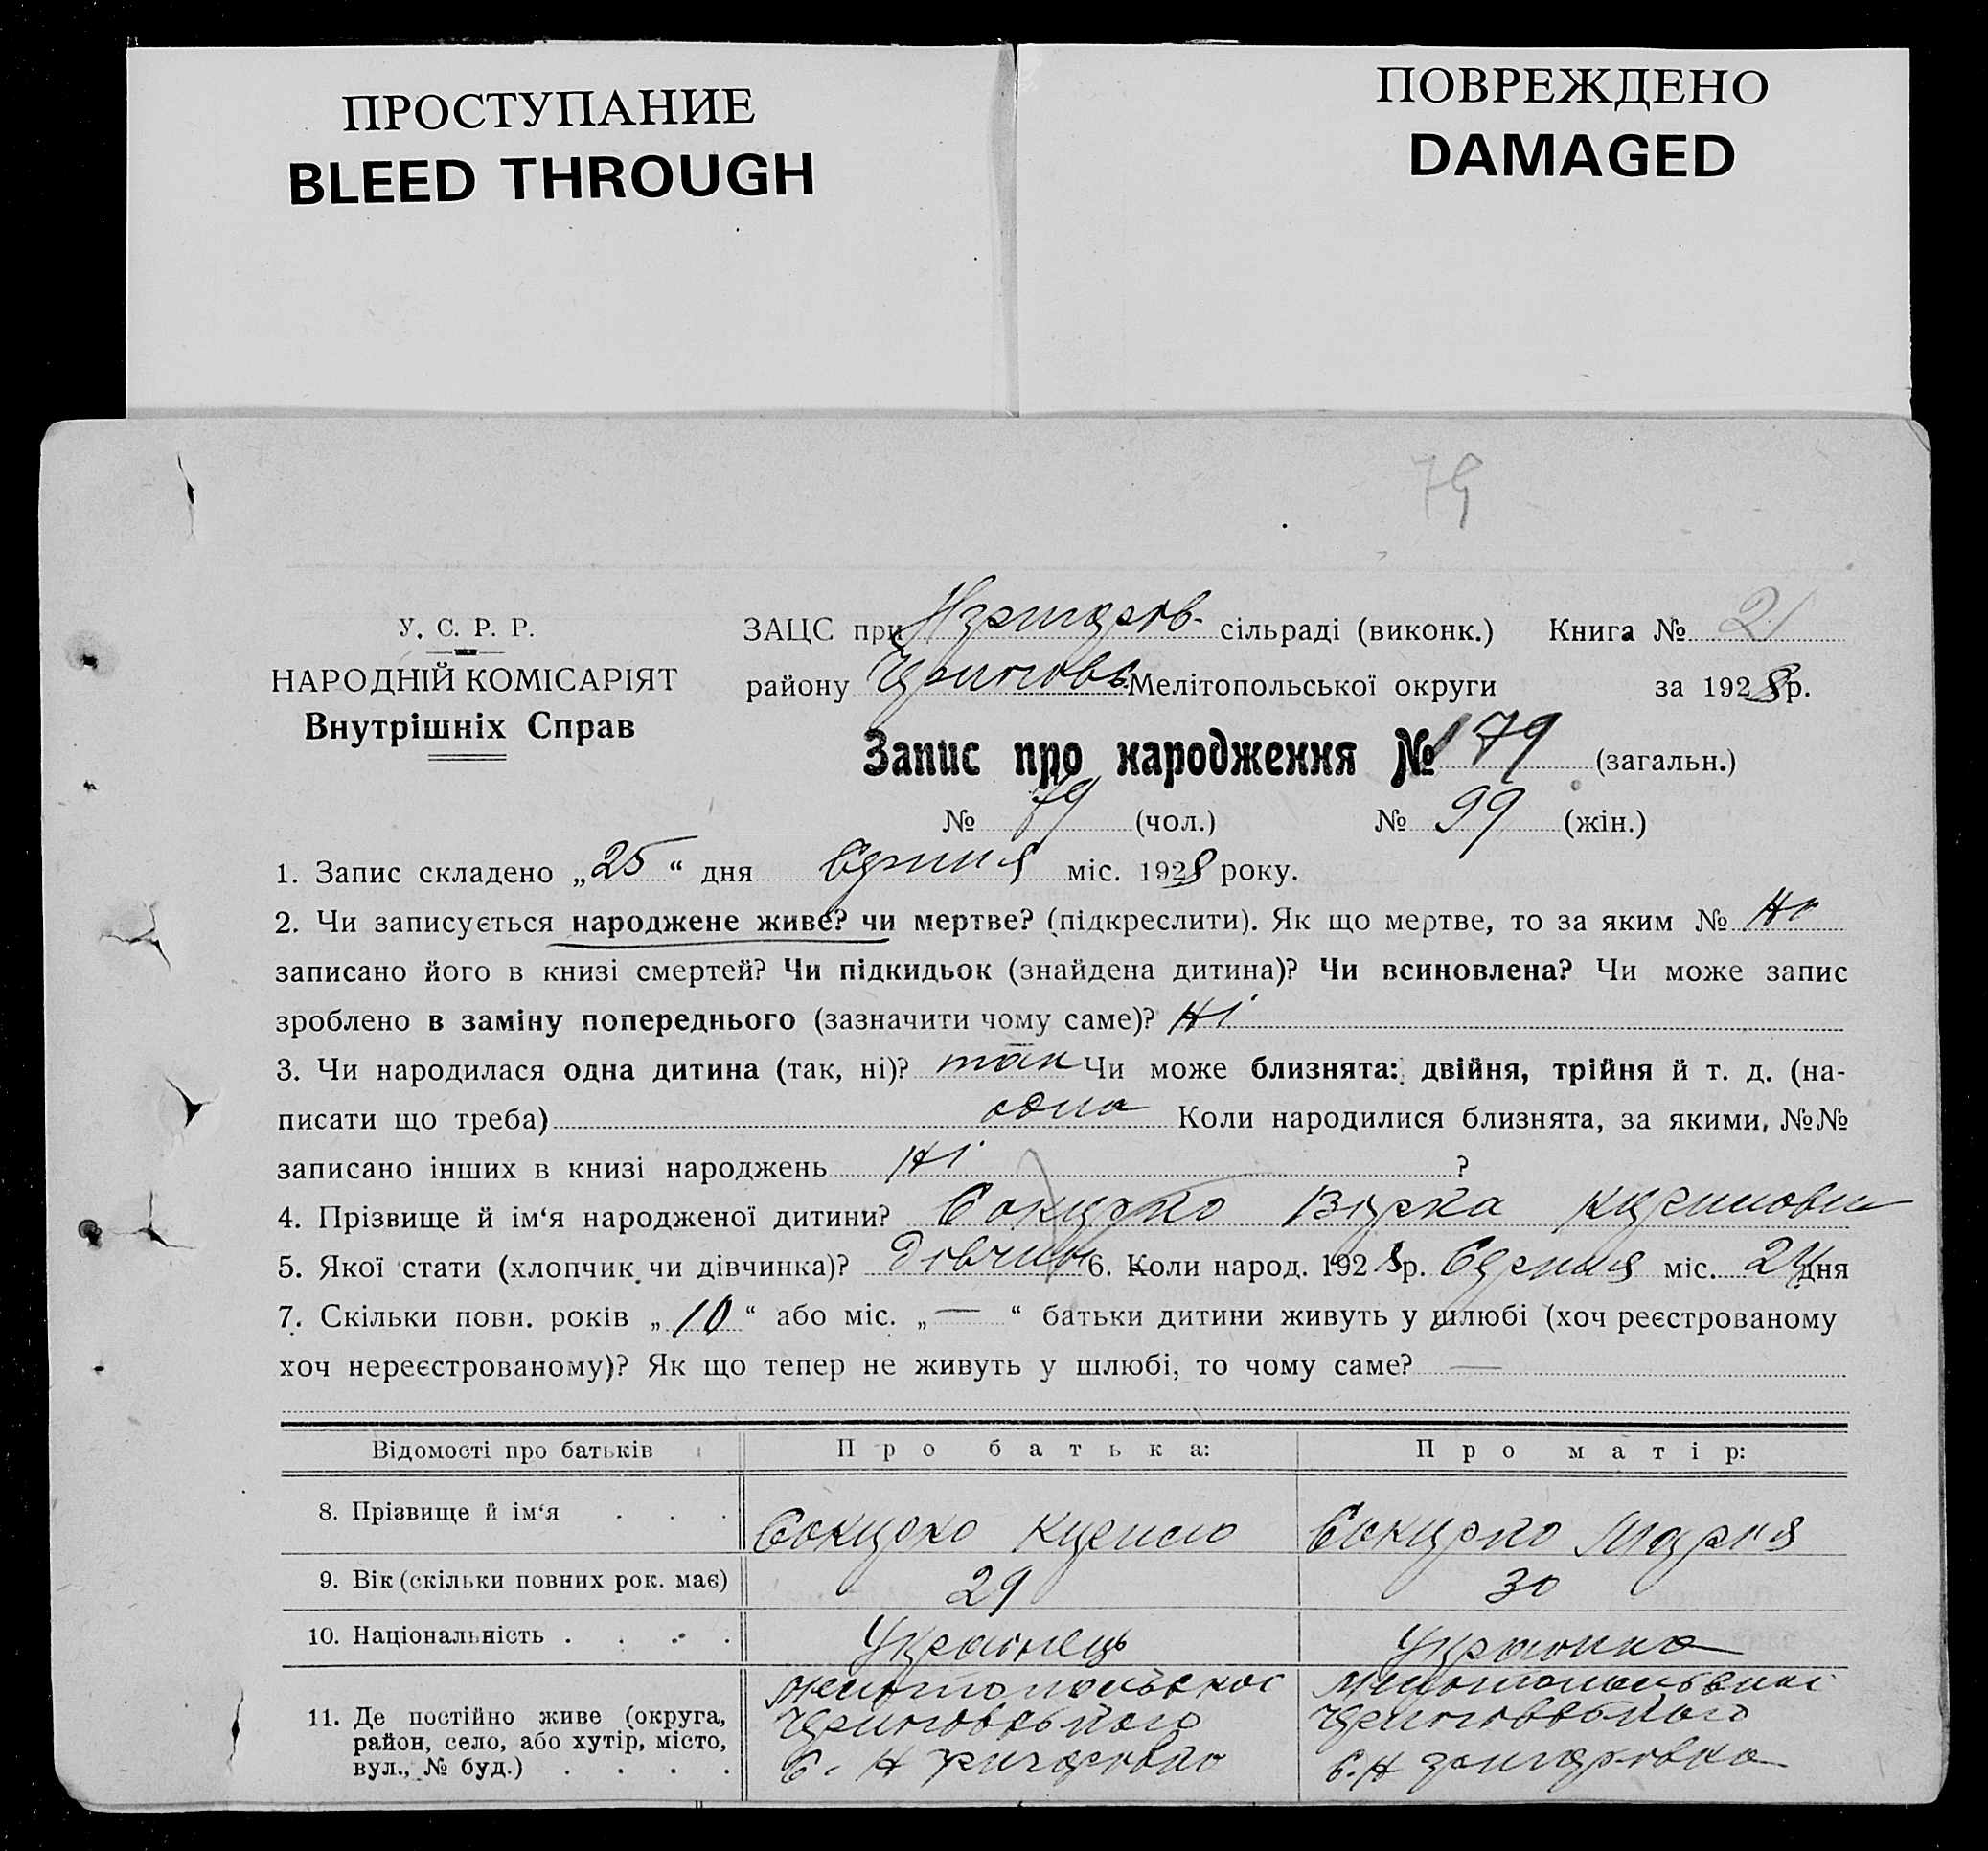 ПРОСТУПАНИЕ
BLEED THROUGH
ПОВРЕЖДЕНО
DAMAGED
79
У. С. Р. Р.
НАРОДНІЙ КОМІСАРІЯТ
Внутрішніх Справ
ЗАЦС при сільраді (виконк.) Книга № 21
району Мелітопольської округи за 1928 р.
Запис про народження № 179 (загальн.)
№ 79 (чол.) № 99 (жін.)
1. Запис складено „25“ дня Серпня міс. 1928 року.
2. Чи записується народжене живе? чи мертве? (підкреслити). Як що мертве, то за яким № Ні
записано його в книзі смертей? Чи підкидьок (знайдена дитина)? Чи всиновлена? Чи може запис
зроблено в заміну попереднього (зазначити чому саме)? Ні
3. Чи народилася одна дитина (так, ні)? так Чи може близнята: двійня, трійня й т. д. (на-
писати що треба) одна Коли народилися близнята, за якими, №№
записано інших в книзі народжень Ні ?
4. Прізвище й ім‘я народженої дитини? Сокурко Вірка
5. Якої стати (хлопчик чи дівчинка)? Дівчин 6. Коли народ. 1928 р. Серпня міс. 24 дня
7. Скільки повн. років „10“ або міс. „—“ батьки дитини живуть у шлюбі (хоч реєстрованому
хоч нереєстрованому)? Як що тепер не живуть у шлюбі, то чому саме? —
Відомості про батьків Про батька: Про матір:
8. Прізвище й ім‘я . . . Сокурко Сокурко Марія
9. Вік (скільки повних рок. має) 29 30
10. Національність . . . . Українець Українка
11. Де постійно живе (округа,
район, село, або хутір, місто,
вул., № буд.) . . . .